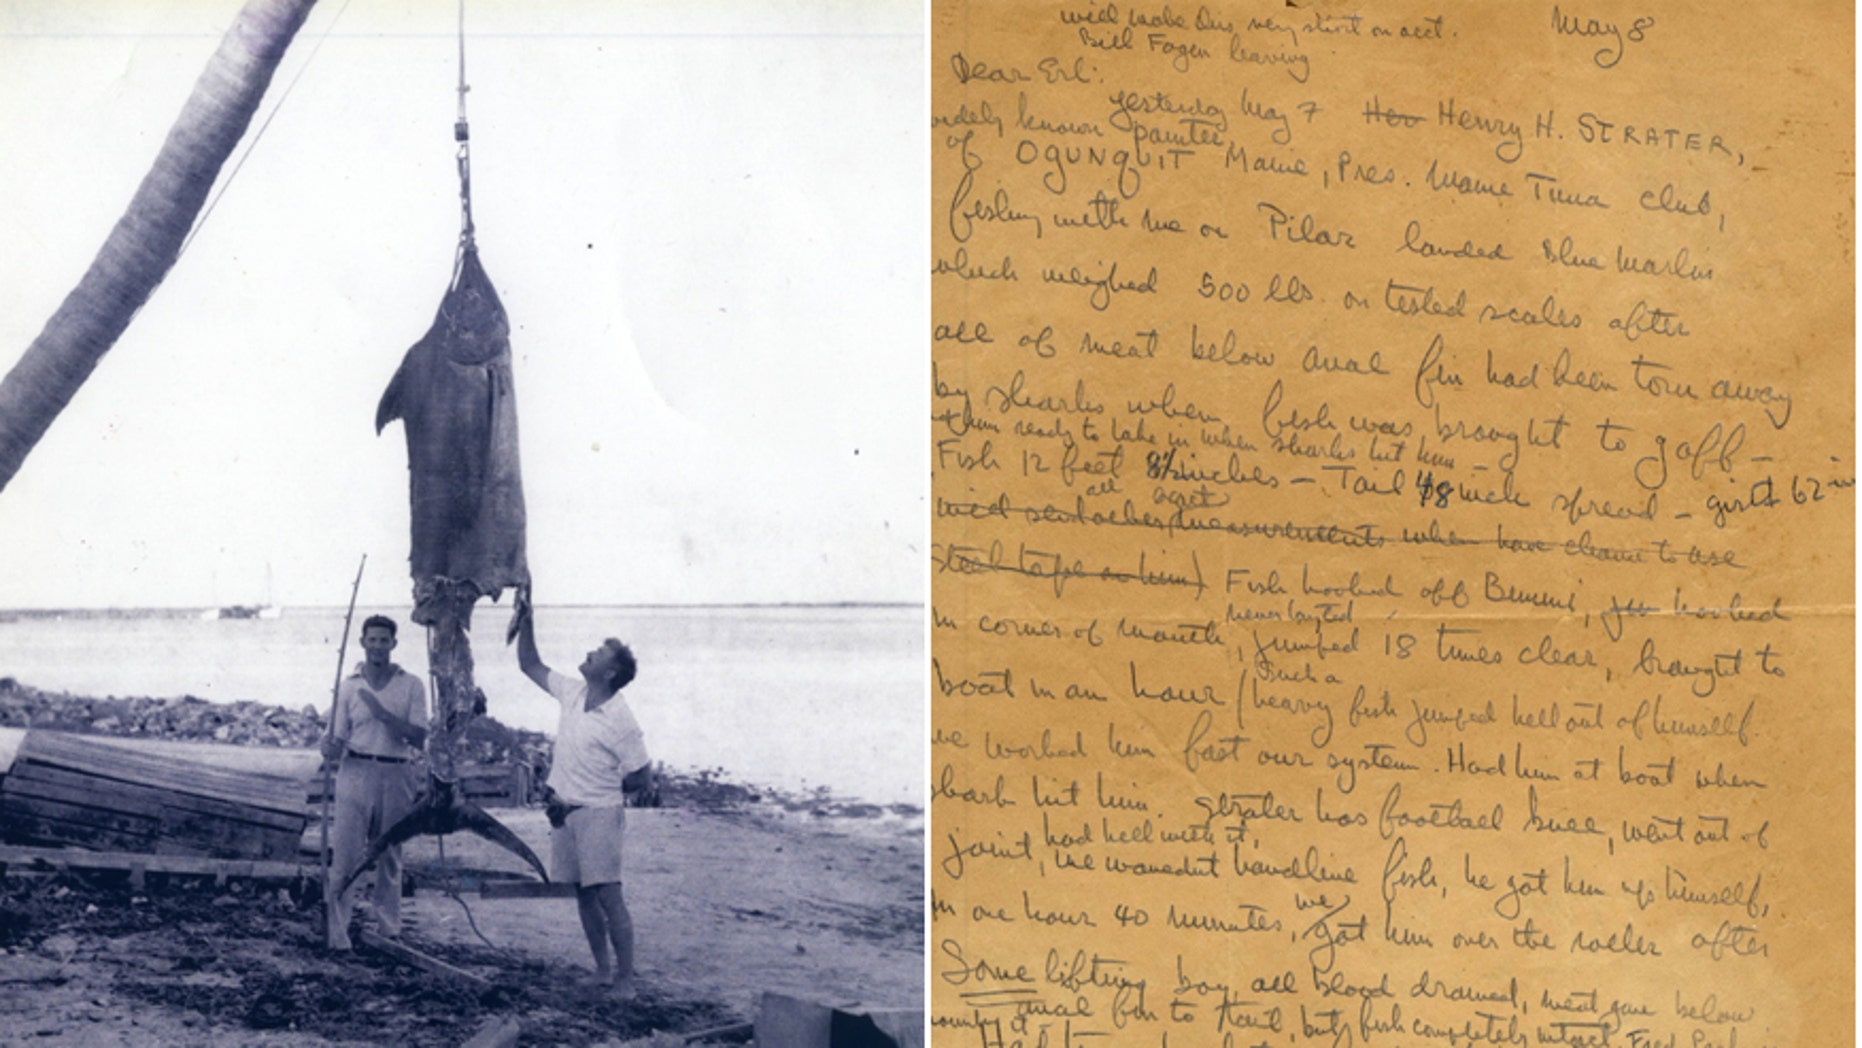 will make this very short on acct.
May 8
Bill Fagen leaving
Dear Erl:
yesterday May 7 Her Henry H. STRATER,
widely known painter,
of OGUNQUIT Maine, Pres. Maine Tuna Club,
fishing with me on Pilar landed Blue Marlin
which weighed 500 lbs. on tested scales after
all of meat below anal fin had been torn away
by sharks when fish was brought to gaff —
ready to take in when sharks hit him —
Fish 12 feet 8½ inches — Tail 48 inch spread — girth 62 in
all
measurements when have chance to use
steel tape on him) Fish hooked off Bimini, hooked
in corner of mouth, never budged, jumped 18 times clear, brought to
boat in an hour / Such a heavy fish jumped hell out of himself.
we worked him fast our system. Had him at boat when
shark hit him. Strater has football knee, went out of
joint, had hell with it, we wouldn't handline fish, he got him up himself,
in one hour 40 minutes, we got him over the roller after
Some lifting boy, all blood drained, meat gone below
anal fin to tail, but fish completely intact, Fred